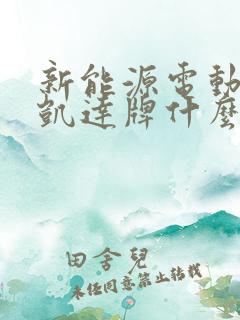 新能源電動
凱達牌什麼
田舍兒
未經同意禁止轉載